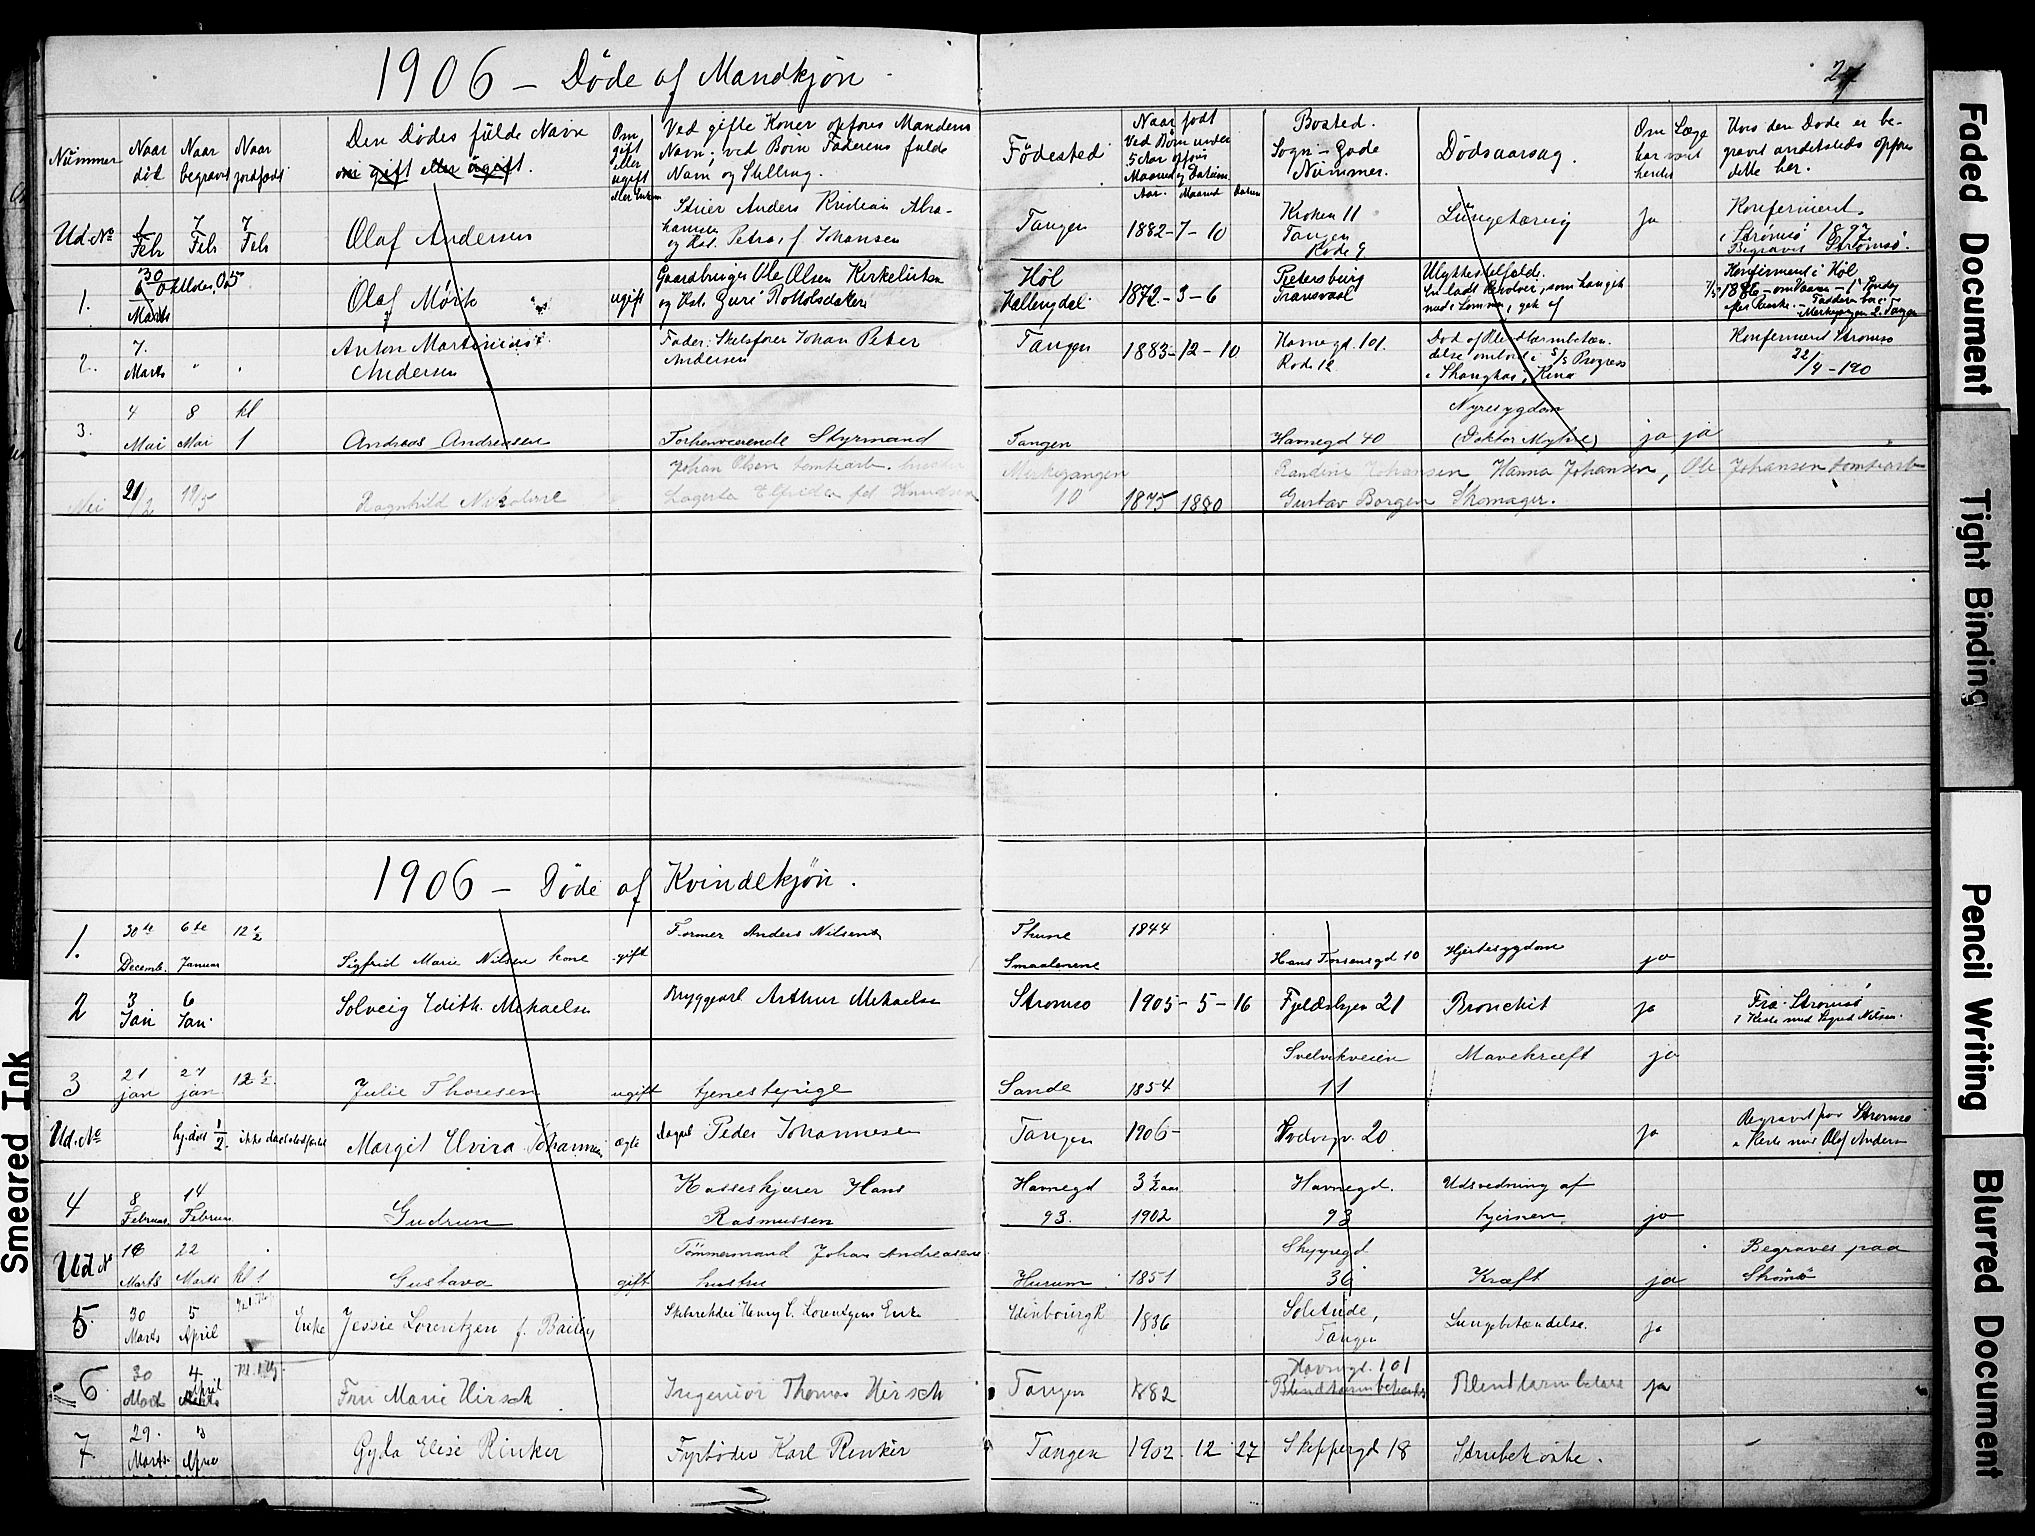 1906 – Døde af Mandkjøn.
27
Nummer
Naar død
Naar begravet
Naar jordfæstet
Den Dødes fulde Navn
om gift eller ugift.
Om gift eller ugift eller Enke
Ved gifte Koner opføres Mandens Navn; ved Børn Faderens fulde Navn og Stilling.
Fødested
Naar født
Ved Børn under 5 Aar opføres Maaned og Datum.
Aar. Maaned Datum
Bosted. Sogn – Gade Nummer.
Dødsaarsag.
Om Læge har været hentet
Hvis den Døde er begravet andetsteds opføres dette her.
Ud. No 1 Feb 7 Feb 7 Feb Olaf Andersen
Anders Kristian Abrahamsen og Hst. Petra, f. Johansen
Tangen 1882-7-10 Kroken 11 Tangen Rode 9 Lungetæring Ja
Konfirmert i Strømsø 1897. Begravet Strømsø.
1. 30 Oktober 05 Marts Olaf Mørk ugift
Gaardbruger Ole Olsen Kirkelien og Hst. Guri
Høl Hallingdal 1872-3-6 Pietersburg Transvaal
Ulykkestilfælde. En ladt Revolver, som han gik med i Lommen, gik af
Konfirmert i Høl 1886
2. 7. Marts " " Anton Martinius Andersen
Fader: Skibsfører Johan Peter Andersen
Tangen 1883-12-10 Havnegd. 101. Rode 12
Død af Blindtarmbetændelse ombord i S/S Progress i Shanghai, Kina
Konfirmert Strømsø 22/4-190
3. 4 Mai 8 Mai kl 1 Andreas Andreasen
Forhenværende Styrmand Tangen Havnegd 40
Nyresygdom (Doktor Myhre) ja ja
21/2 19/5 Ragnhild Nikoline
Johan Olsen tomtearb.
Lagerta Elfrida fd Knudsen
Merkegangen 10 1875 1880
Randine Johansen, Hanna Johansen, Ole Johansen tomtearb
Gustav Borgen Skomager.
1906 – Døde af Kvindekjøn.
1. 30te Decemb. 6te Januar 12 1/2 Sigfrid Marie Nilsen kone gift
Former Anders Nilsens
Thune Smaalenene 1844 Hans Tordensgd 10 Hjertesygdom ja
2 3 Jan 6 Jan. Solveig Edith Mikaelsen
Bryggearb Arthur Mikaelsen Strømsø 1905-5-16 21 Bronchit ja
Fra Strømsø i Kiste med Sigrid Nilsen.
3 21 jan 27 jan 12 1/2 Julie Thoresen ugift tjenestepige
Sande 1854 Svelvikveien 11 Mavekræft ja
Ud. No 1/2. ikke daabsbedført Margit Elvira Johannesen ægte
Peder Johannesen Tangen 1906- 20 ja
Begravet paa Strømsø i Kiste med Olaf Andersen
4 8 Februar 14 Februar Gudrun
Kasseskjærer Hans Rasmussen
Havnegd 93. 3 1/2 aar 1902 Havnegd. 93 Udsvedning af hjernen. ja
Ud No 16 Marts 22 Marts kl 1 Gustava gift
Tømmermand Johan Andreasens hustru
Hurum 1851 Skippergd 36 Kræft ja
Begraves paa Strømsø
5. 30 Marts 5 April Enke Jessie Lorentzen f. Bailey
Skibsreder Henry C. Lorentzens Enke
Edinbourgh 1836 Solitude, Tangen Lungebetændelse. ja
6. 30 Marts 4 April Fru Marie Hirsch
Ingeniør Thomas Hirsch
Tangen 1882 Havnegd. 101 Blindtarmbetændelse ja
7. 29. Marts 3 April Gyda Elise Rinker
Fyrbøder Karl Renker
Tangen 1902. 12. 27 Skippergd 18 Strubehoste.
Smeared Ink
Faded Document
Tight Binding
Pencil Writing
Blurred Document